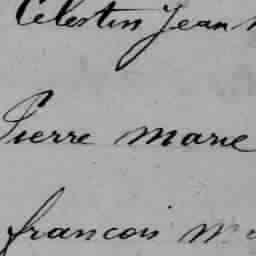 Célestin Jean
Pierre Marie
françois